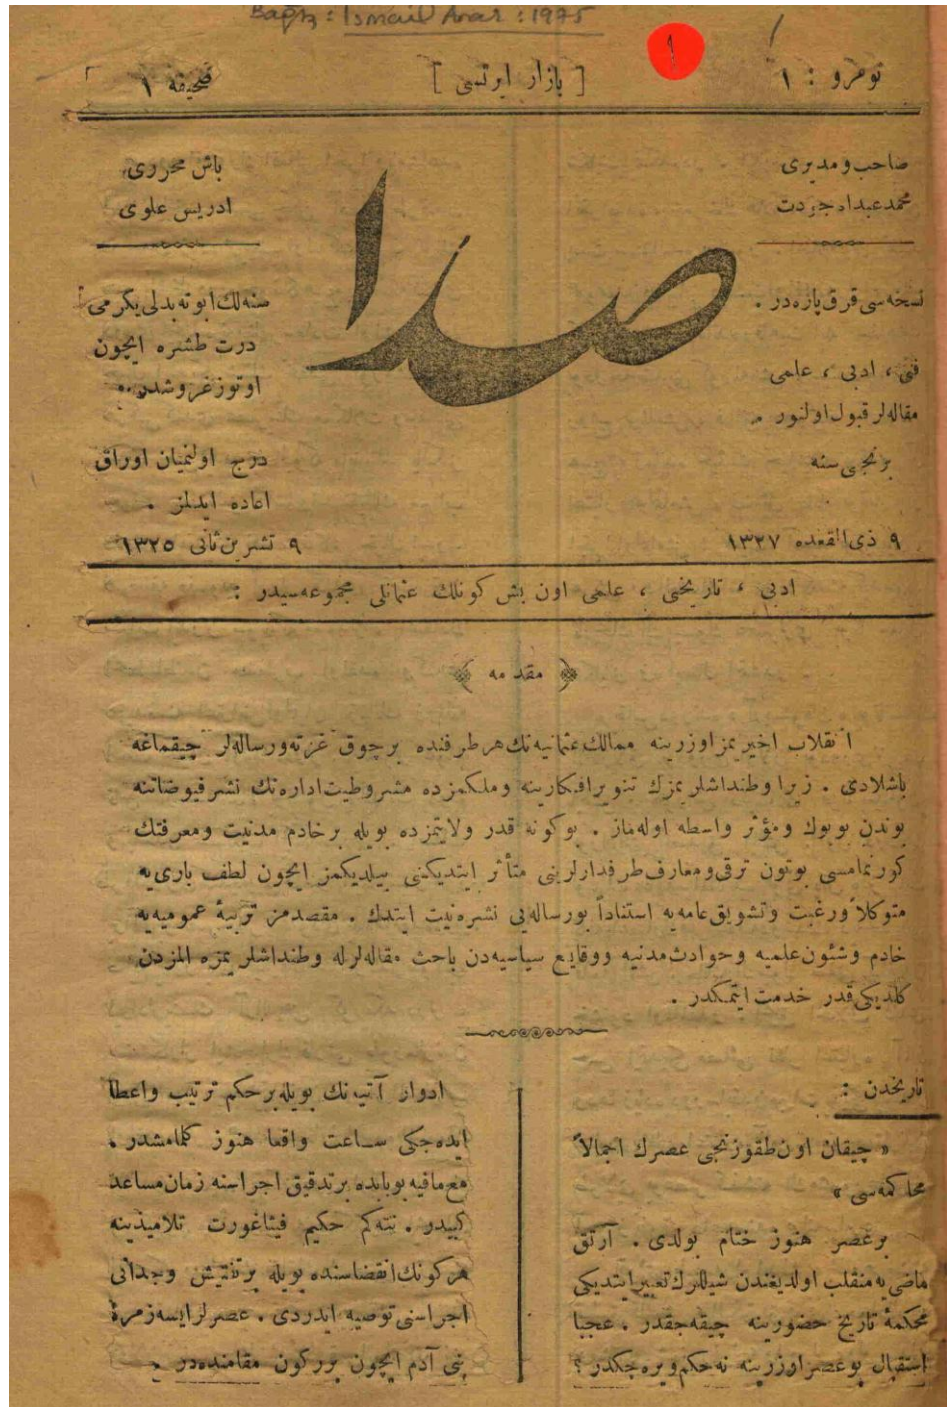 Bağış : İsmail Arar : 1975
نومرو : ١
١
[ بازار ايرتسى ]
صحيفه ١
صاحب ومديرى
محمد عبدالله جودت
نسخه‌سى قرق پاره‌در .
فنى ، ادبى ، علمى
مقاله‌لر قبول اولنور .
برنجى سنه
٩ ذى القعده ١٣٢٧
صدا
باش محررى
ادريس علوى
سنه‌لك ابونه بدلى يكرمى
درت طشره ايچون
اوتوز غروشدر .
درج اولنميان اوراق
اعاده ايدلمز .
٩ تشرين ثانى ١٣٢٥
ادبى ، تاريخى ، علمى اون بش كونلك عثمانلى مجموعه‌سيدر :
﴿ مقدمه ﴾
انقلاب اخيريمز اوزرينه ممالك عثمانيه‌نك هر طرفنده برچوق غزته ورساله‌لر چيقماغه
باشلادى . زيرا وطنداشلريمزك تنوير افكارينه وملكمزده مشروطيت اداره‌نك نشر فيوضاتنه
بوندن بويوك ومؤثر واسطه اوله‌ماز . بوكونه قدر ولايتمزده بويله برخادم مدنيت ومعرفتك
كورنمامسى بوتون ترقى ومعارف طرفدارلرينى متأثر ايتديكنى بيلديكمز ايچون لطف بارى‌يه
متوكلاً ورغبت وتشويق عامه‌يه استناداً بورساله‌يى نشره نيت ايتدك . مقصدمز تربيهٔ عموميه‌يه
خادم وشئون علميه وحوادث مدنيه ووقايع سياسيه‌دن باحث مقاله‌لرله وطنداشلريمزه المزدن
كلديكى قدر خدمت ايتمكدر .
تاريخدن :
« چيقان اون طقوزنجى عصرك اجمالاً
محاكمه‌سى »
برعصر هنوز ختام بولدى . آرتق
ماضى‌يه منقلب اولديغندن شيللرك تعبير ايتديكى
محكمهٔ تاريخ حضورينه چيقه‌جقدر . عجبا
استقبال بوعصر اوزرينه نه حكم ويره‌جكدر ؟
ادوار آتيه‌نك بويله برحكم ترتيب واعطا
ايده‌جكى ساعت واقعا هنوز كلمامشدر .
مع مافيه بوبابده برتدقيق اجراسنه زمان مساعد
كبيدر . نته‌كم حكيم فيثاغورت تلاميذينه
هركونك انقضاسنده بويله برتفتيش وجدانى
اجراسنى توصيه ايدردى . عصرلر ايسه زمرهٔ
بنى آدم ايچون بررکون مقامنده‌در .